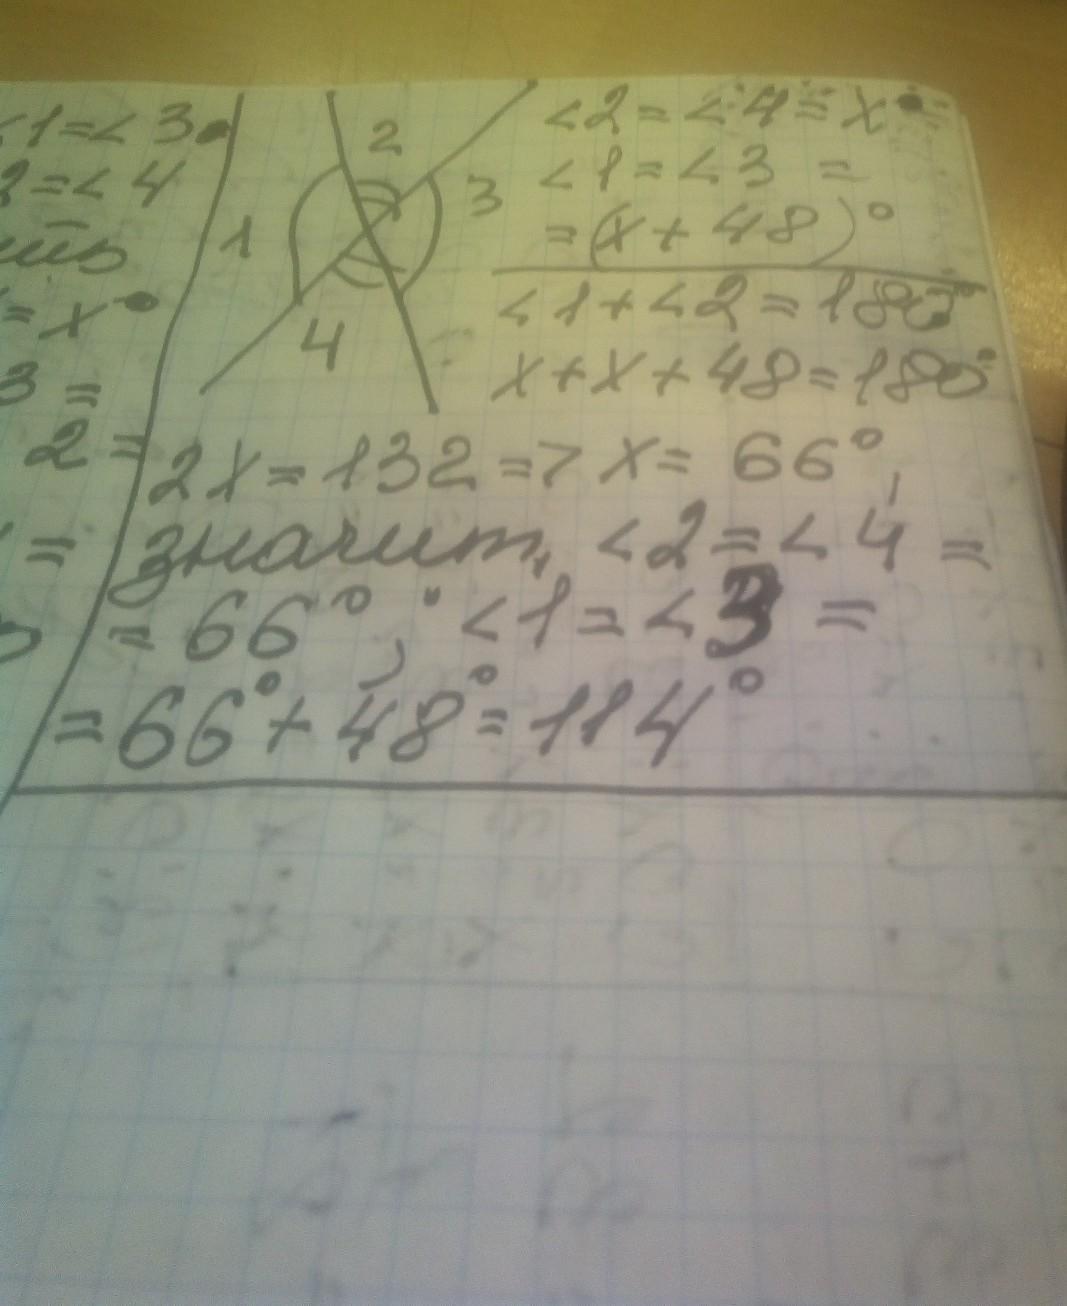 <1=<3
2=<4
=x°
3=
2=
=
2
1
3
4
<2=<4=x°
<1=<3=
=(x+48)°
<1+<2=180°
x+x+48=180°
2x=132=>x=66°,
значит, <2=<4=
=66°, <1=<3=
=66°+48°=114°